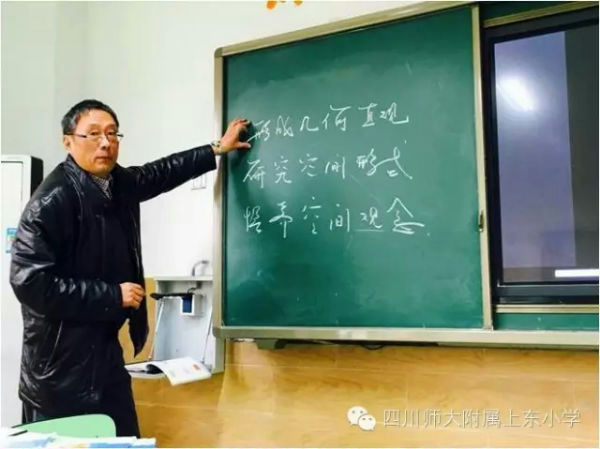 形成几何直观
研究空间形式
培养空间观念
四川师大附属上东小学